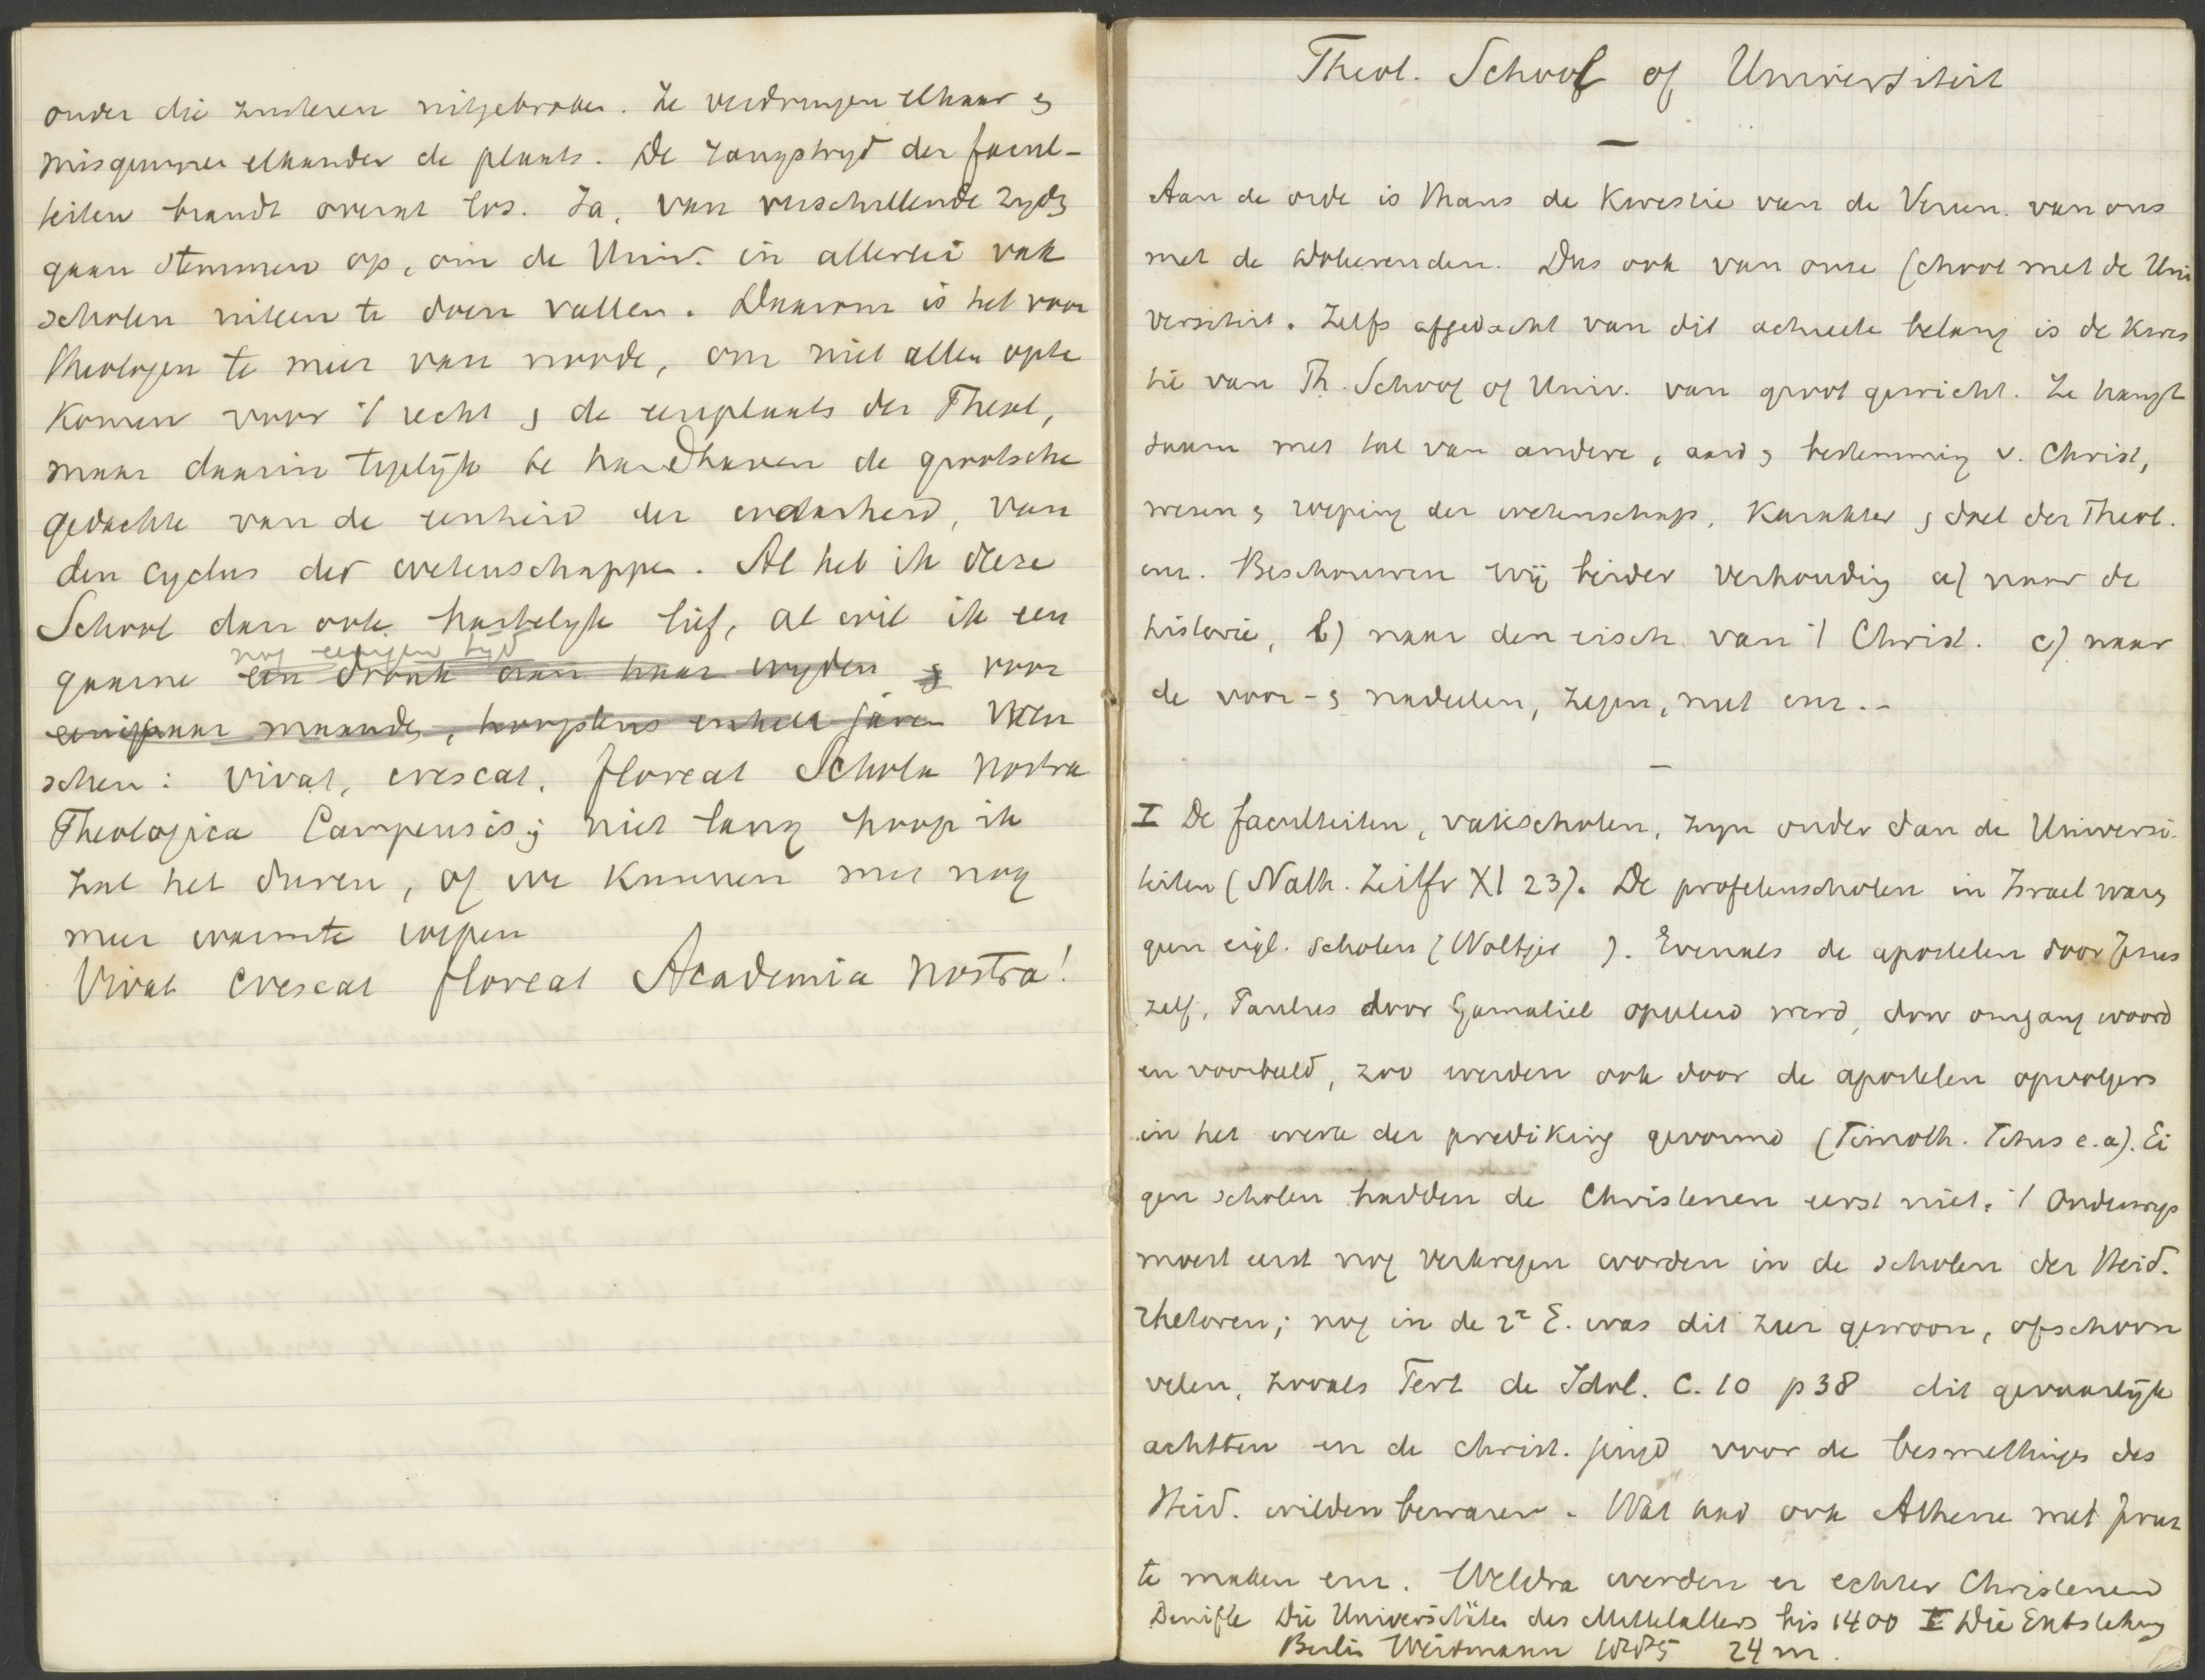 onder die zusteren uitgebroken. Ze verdringen elkaar en
misgunnen elkander de plaats. De rangstryd der facul-
teiten brandt overal los. Ja, van verschillende zyden
gaan stemmen op, om de Univ. in allerlei vak
scholen uiteen te doen vallen. Daarom is het voor
theologen te meer van noode, om niet alleen op te
komen voor 't recht en de eereplaats der Theol,
maar daarin tegelijk te handhaven de grootsche
gedachte van de eenheid der waarheid, van
den cyclus der wetenschappen. Al heb ik deze
School dan ook hartelijk lief, al wil ik een
nog eenigen tyd
gaarne een dronk aan haar wyden en voor
een paar maanden, hoogstens enkele jaren wen
schen: vivat, crescat, floreat Schola nostra
Theologica Campensis; niet lang hoop ik
zal het duren, of we kunnen met nog
meer warmte roepen
Vivat crescat floreat Academia nostra!
Theol. School of Universiteit
Aan de orde is thans de kwestie van de Vereen. van ons
met de doleerenden. Dus ook van onze School met de Uni
versiteit. Zelfs afgedacht van dit actueele belang is de kwes
tie van Th. School of Univ. van groot gewicht. Ze hangt
saam met tal van andere, aard en bestemming v. Christ,
wezen en roeping der wetenschap, karakter en doel der Theol.
enz. Beschouwen wij beider verhouding a) naar de
historie, b) naar den eisch van 't Christ. c) naar
de voor- en nadeelen, zegen, nut enz.-
I De faculteiten, vakscholen, zyn ouder dan de Universi
teiten (Nath. Zeitfr XI 23). De profetenscholen in Israel waren
geen eigl. scholen (Woltjer ). Evenals de apostelen door Jezus
zelf, Paulus door Gamaliel opgeleid werd, door omgang woord
en voorbeeld, zoo werden ook door de apostelen opvolgers
in het werk der prediking gevormd (Timoth. Titus e.a). Ei
gen scholen hadden de Christenen eerst niet. 't Onderwys
moest eerst nog verkregen worden in de scholen der Heid.
rhetoren; nog in de 2e E. was dit zeer gewoon, ofschoon
velen, zooals Tert de Idol. c. 10 p 38 dit gevaarlijk
achtten en de christ. jeugd voor de besmettingen des
Heid. wilden bewaren. Wat had ook Athene met Jeruz
te maken enz. Weldra werden er echter Christenen
Denifle Die Universitäten des Mittelalters bis 1400 I Die Entstehung
Berlin Weidmann 1885 24 m.